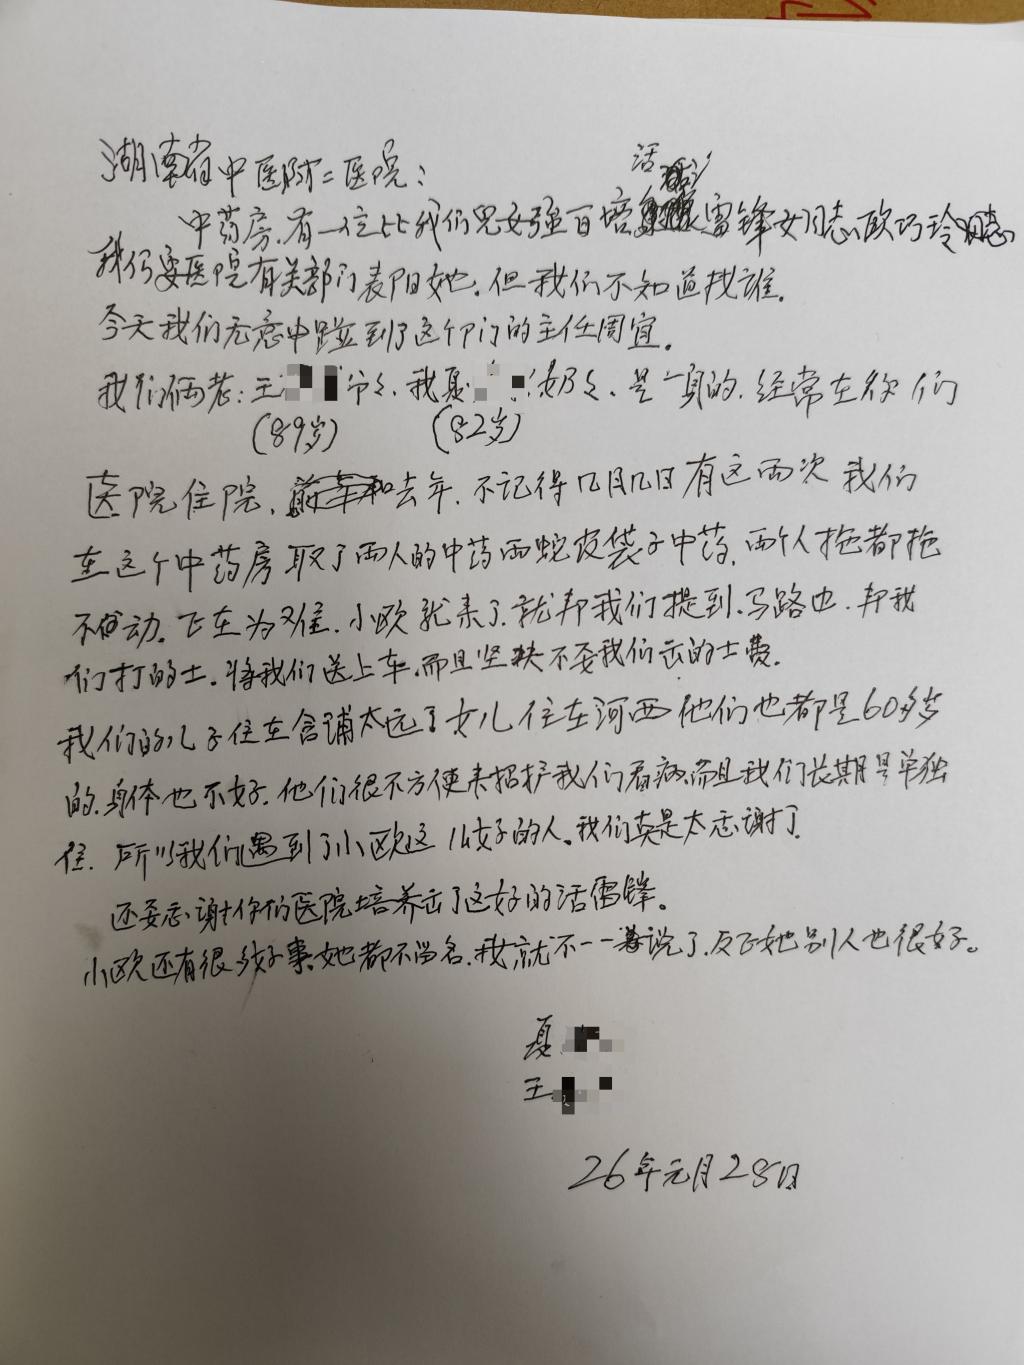 湖南省中医附二医院:
活
中药房.有一位比我们儿女强百培雷锋女同志、欧巧玲同志
我们要医院有关部门表阳她.但我们不知道找谁.
今天我们无意中碰到了这个门的主任周宜.
我们俩老:王 爷々、我夏 奶々、是真的.经常在你们
(89岁) (82岁)
医院住院、去年.不记得几月几日有这两次我们
在这个中药房取了两人的中药两蛇皮袋子中药.两个人拖都拖
不动.正在为难.小欧就来了.就帮我们提到.马路边.帮我
们打的士.将我们送上车.而且坚持不要我们出的士费.
我们的儿子住在含浦太远了女儿住在河西他们也都是60多岁
的.身体也不好.他们很不方便来招护我们看病.而且我们长期是单独
住.所以我们遇到了小欧这么好的人.我们真是太感谢了
还要感谢你们医院培养出了这好的活雷锋。
小欧还有很多好事.她都不留名.我就不一一说了.反正她别人也很好。
夏
王
26年元月28日